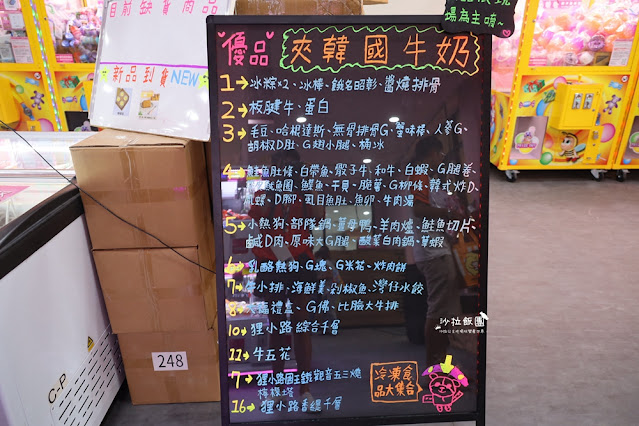 目前缺貨商品
新品到貨NEW
場為主唷~
優品 夾韓國牛奶
1→冰粽×2、冰棒、餓名昭彰、醬燒排骨
2→板腱牛、蛋白
3→毛豆、哈根達斯、無骨排骨G、蟹味棒、人蔘G、
胡椒D肚、G翅小腿、桶冰
4→鮭魚肚條、白帶魚、骰子牛、和牛、白蝦、G腿善
鯛魚、干貝、脆薯、G柳條、韓式炸D、
D腳、虱目魚肚、魚卵、牛肉湯
5→小熱狗、部隊鍋、薑母鴨、羊肉爐、鮭魚切片、
鹹D肉、原味大G腿、酸菜白肉鍋、草蝦
6→乳酪熱狗、G塊、G米花、炸肉餅
7→牛小排、海鮮羹、剁椒魚、灣仔水餃
8→禮盒、G佛、比臉大牛排
10→狸小路 綜合千層
11→牛五花
7→狸小路國王鐵觀音五三燒
檸檬塔
16→狸小路香緹千層
冷凍食
品大集合
沙拉飯圖
248
C-P